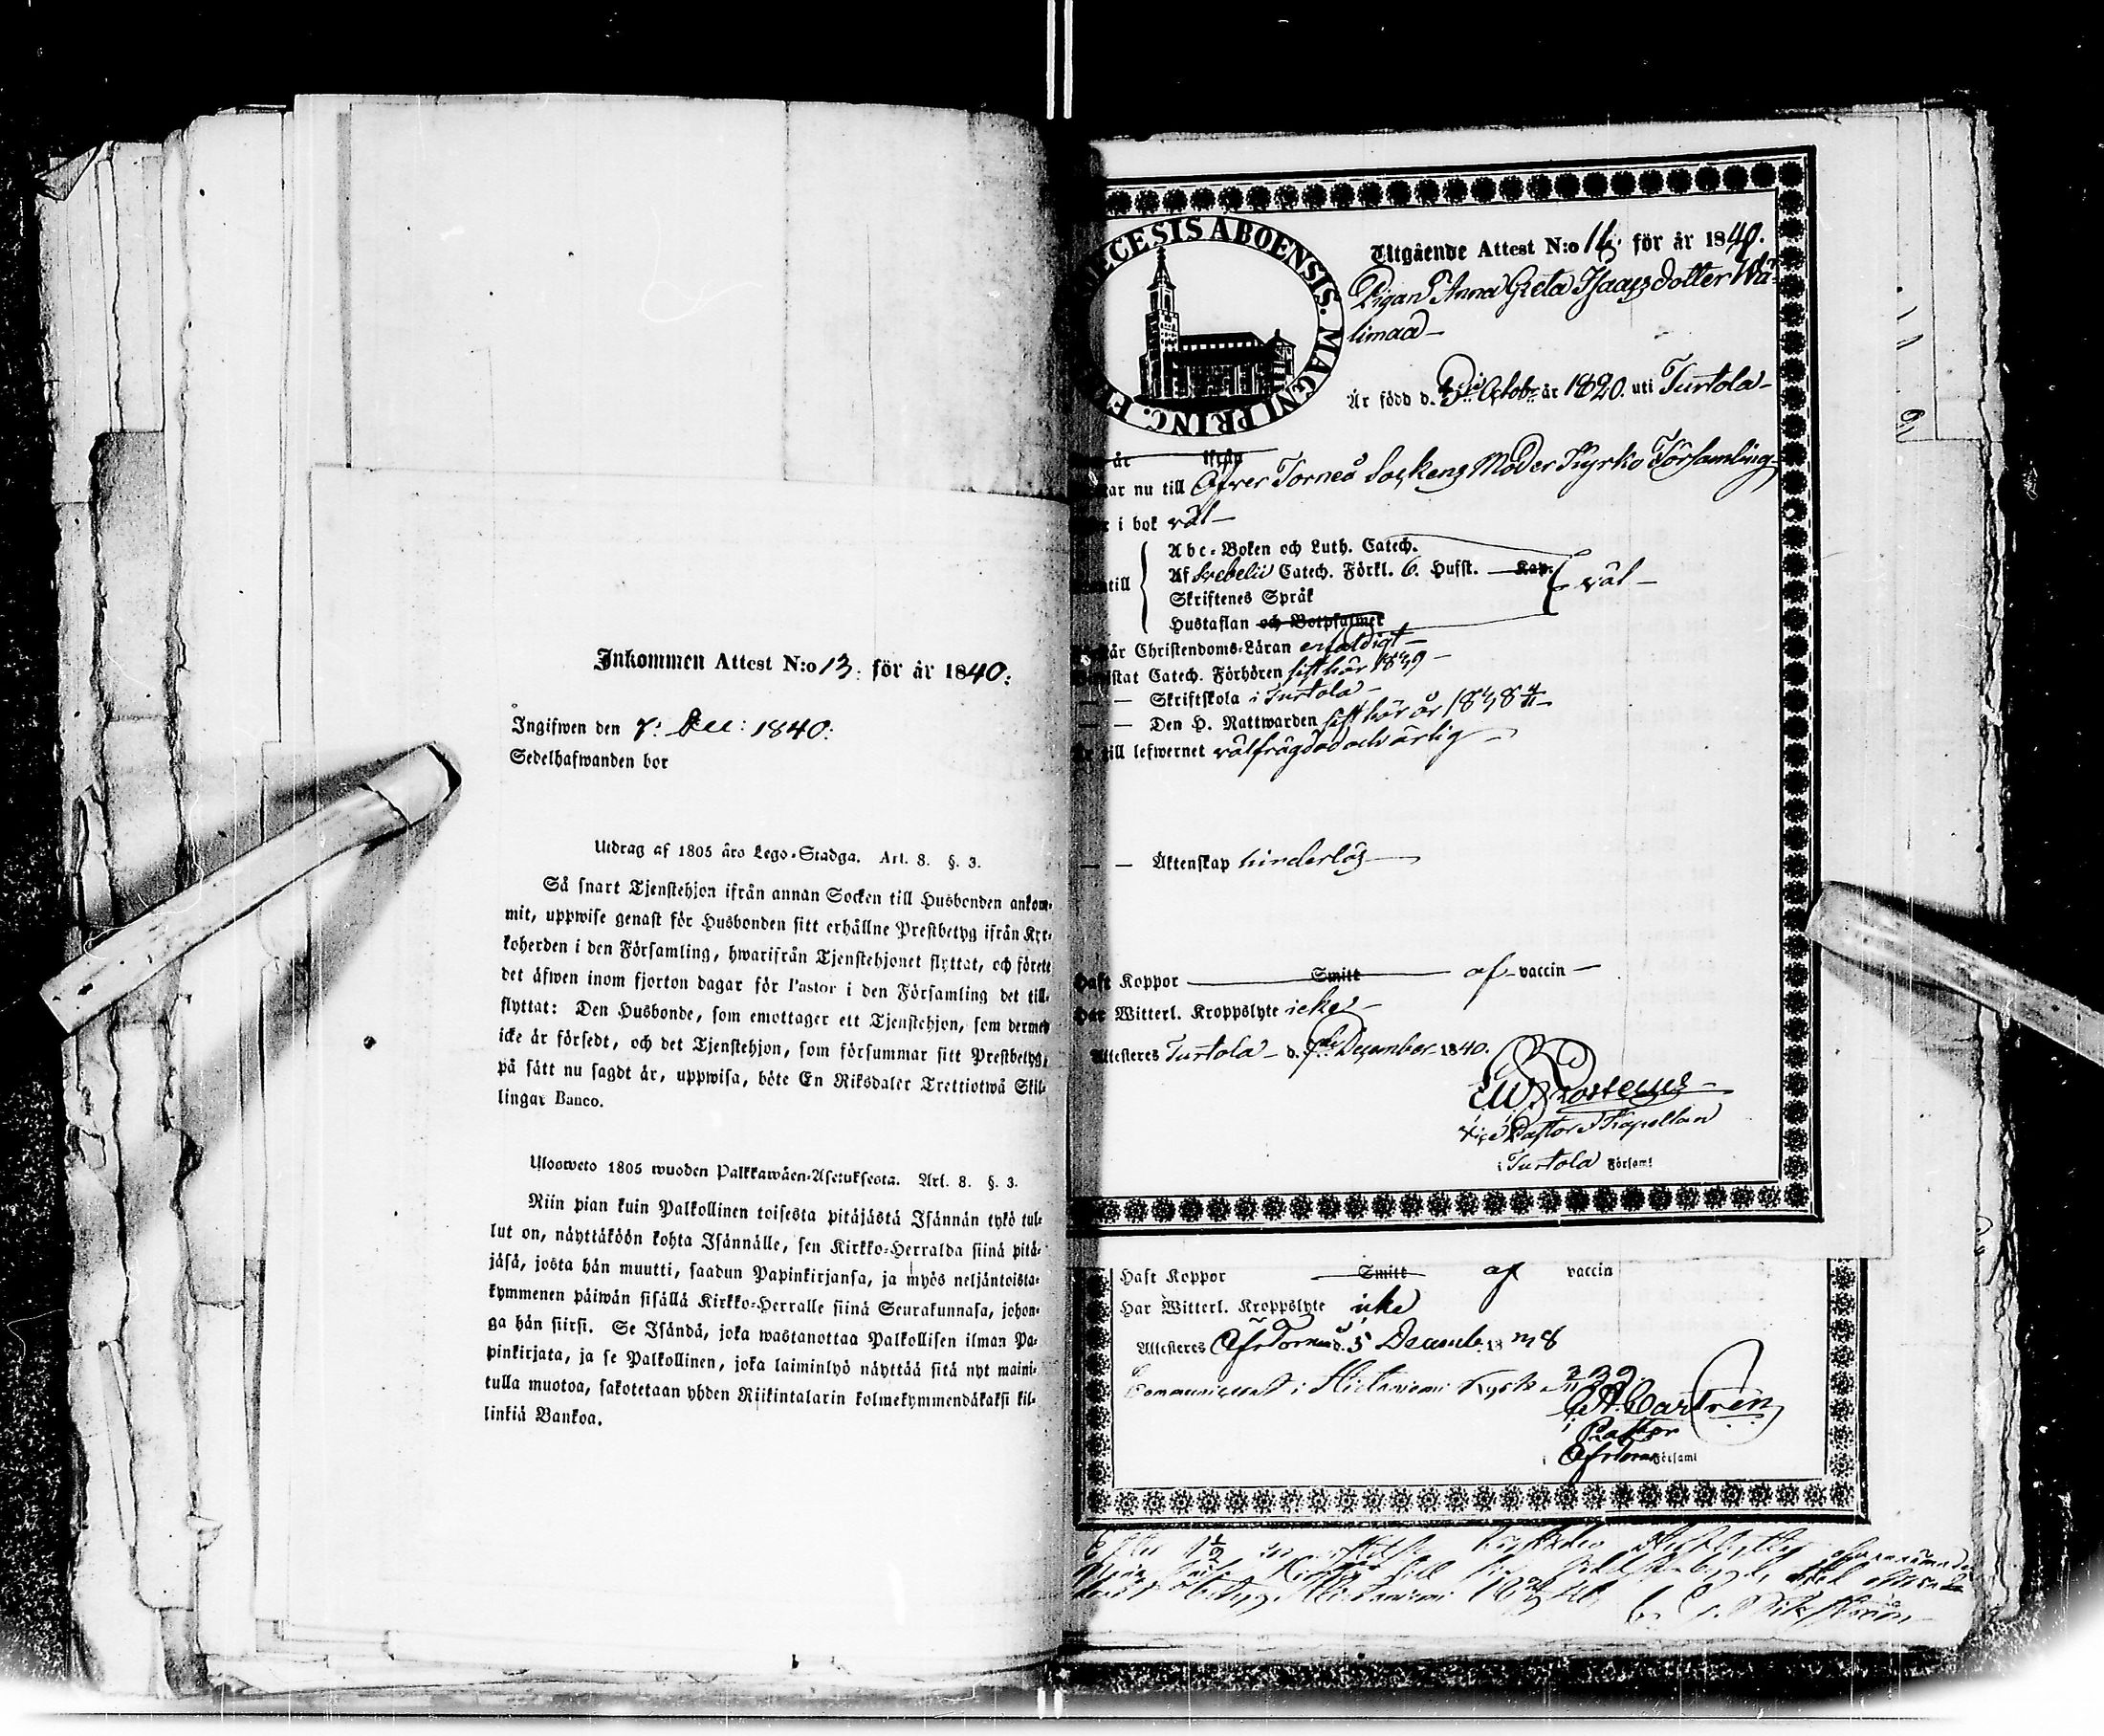 Inkommen Attest N:o 13. för år 1840:
Ingifwen den 7: Dec: 1840:
Sedelhafwanden bor
Utdrag af 1805 års Lego-Stadga. Art. 8. §. 3.
Så snart Tjenstehjon ifrån annan Socken till Husbonden ankom-
mit, uppwise genast för Husbonden sitt erhållne Prestbetyg ifrån Kyr-
koherden i den Församling, hwarifrån Tjenstehjonet flyttat, och förete
det äfwen inom fjorton dagar för Pastor i den Församling det till-
flyttat: Den Husbonde, som emottager ett Tjenstehjon, som dermed
icke är försedt, och det Tjenstehjon, som försummar sitt Prestbetyg,
på sätt nu sagdt är, uppwisa, böte En Riksdaler Trettiotwå Skil-
lingar Banco.
Ulosweto 1805 wuoden Palkkawäen-Asetuksesta. Art. 8. §. 3.
Niin pian kuin Palkollinen toisesta pitäjästä Isännän tykö tul-
lut on, näyttäköön kohta Isännälle, sen Kirkko-Herralda siinä pitä-
jäsä, josta hän muutti, saadun Papinkirjansa, ja myös neljäntoista-
kymmenen päiwän sisällä Kirkko-Herralle siinä Seurakunnasa, johon-
ga hän siirsi. Se Isändä, joka wastanottaa Palkollisen ilman Pa-
pinkirjata, ja se Palkollinen, joka laiminlyö näyttää sitä nyt maini-
tulla muotoa, sakotetaan yhden Riikintalarin kolmekymmendäkaksi kil-
linkiä Bankoa.
ABOENSIS. MAGNI PRINC.
Utgående Attest N:o 16. för år 1840.
Pigan Anna Greta Isaagsdotter Wä-
limaa
Är född d. Octobr år 1820. uti Turtola
år ifrån
nu till Öfver Torneå Sockens Moder Kyrko Församling
i bok väl
Abc-Boken och Luth. Catech.
Af Svebelii Catech. Förkl. 6. Hufst. Kap. väl
Skriftenes Språk
Hustaflan och Botpsalmer
Christendoms-Läran enfaldigt
Catech. Förhören sist här 1839
Skriftskola i Turtola
Den H. Nattwarden sist här år
till lefwernet välfrägdad och ärlig
Äktenskap hinderlös
Haft Koppor Smitt af vaccin
Har Witterl. Kroppslyte icke
Attesteres Turtola d. 7de December 1840.
Vice Pastor Kapellan
i Turtola Församl
Haft Koppor Smitt af vaccin
Har Witterl. Kroppslyte icke
Attesteres Öfr Torneå d. 5 Decemb. 18
Communicerat i Hietaniemi Kyrk
Castrén
Pastor
i Församl